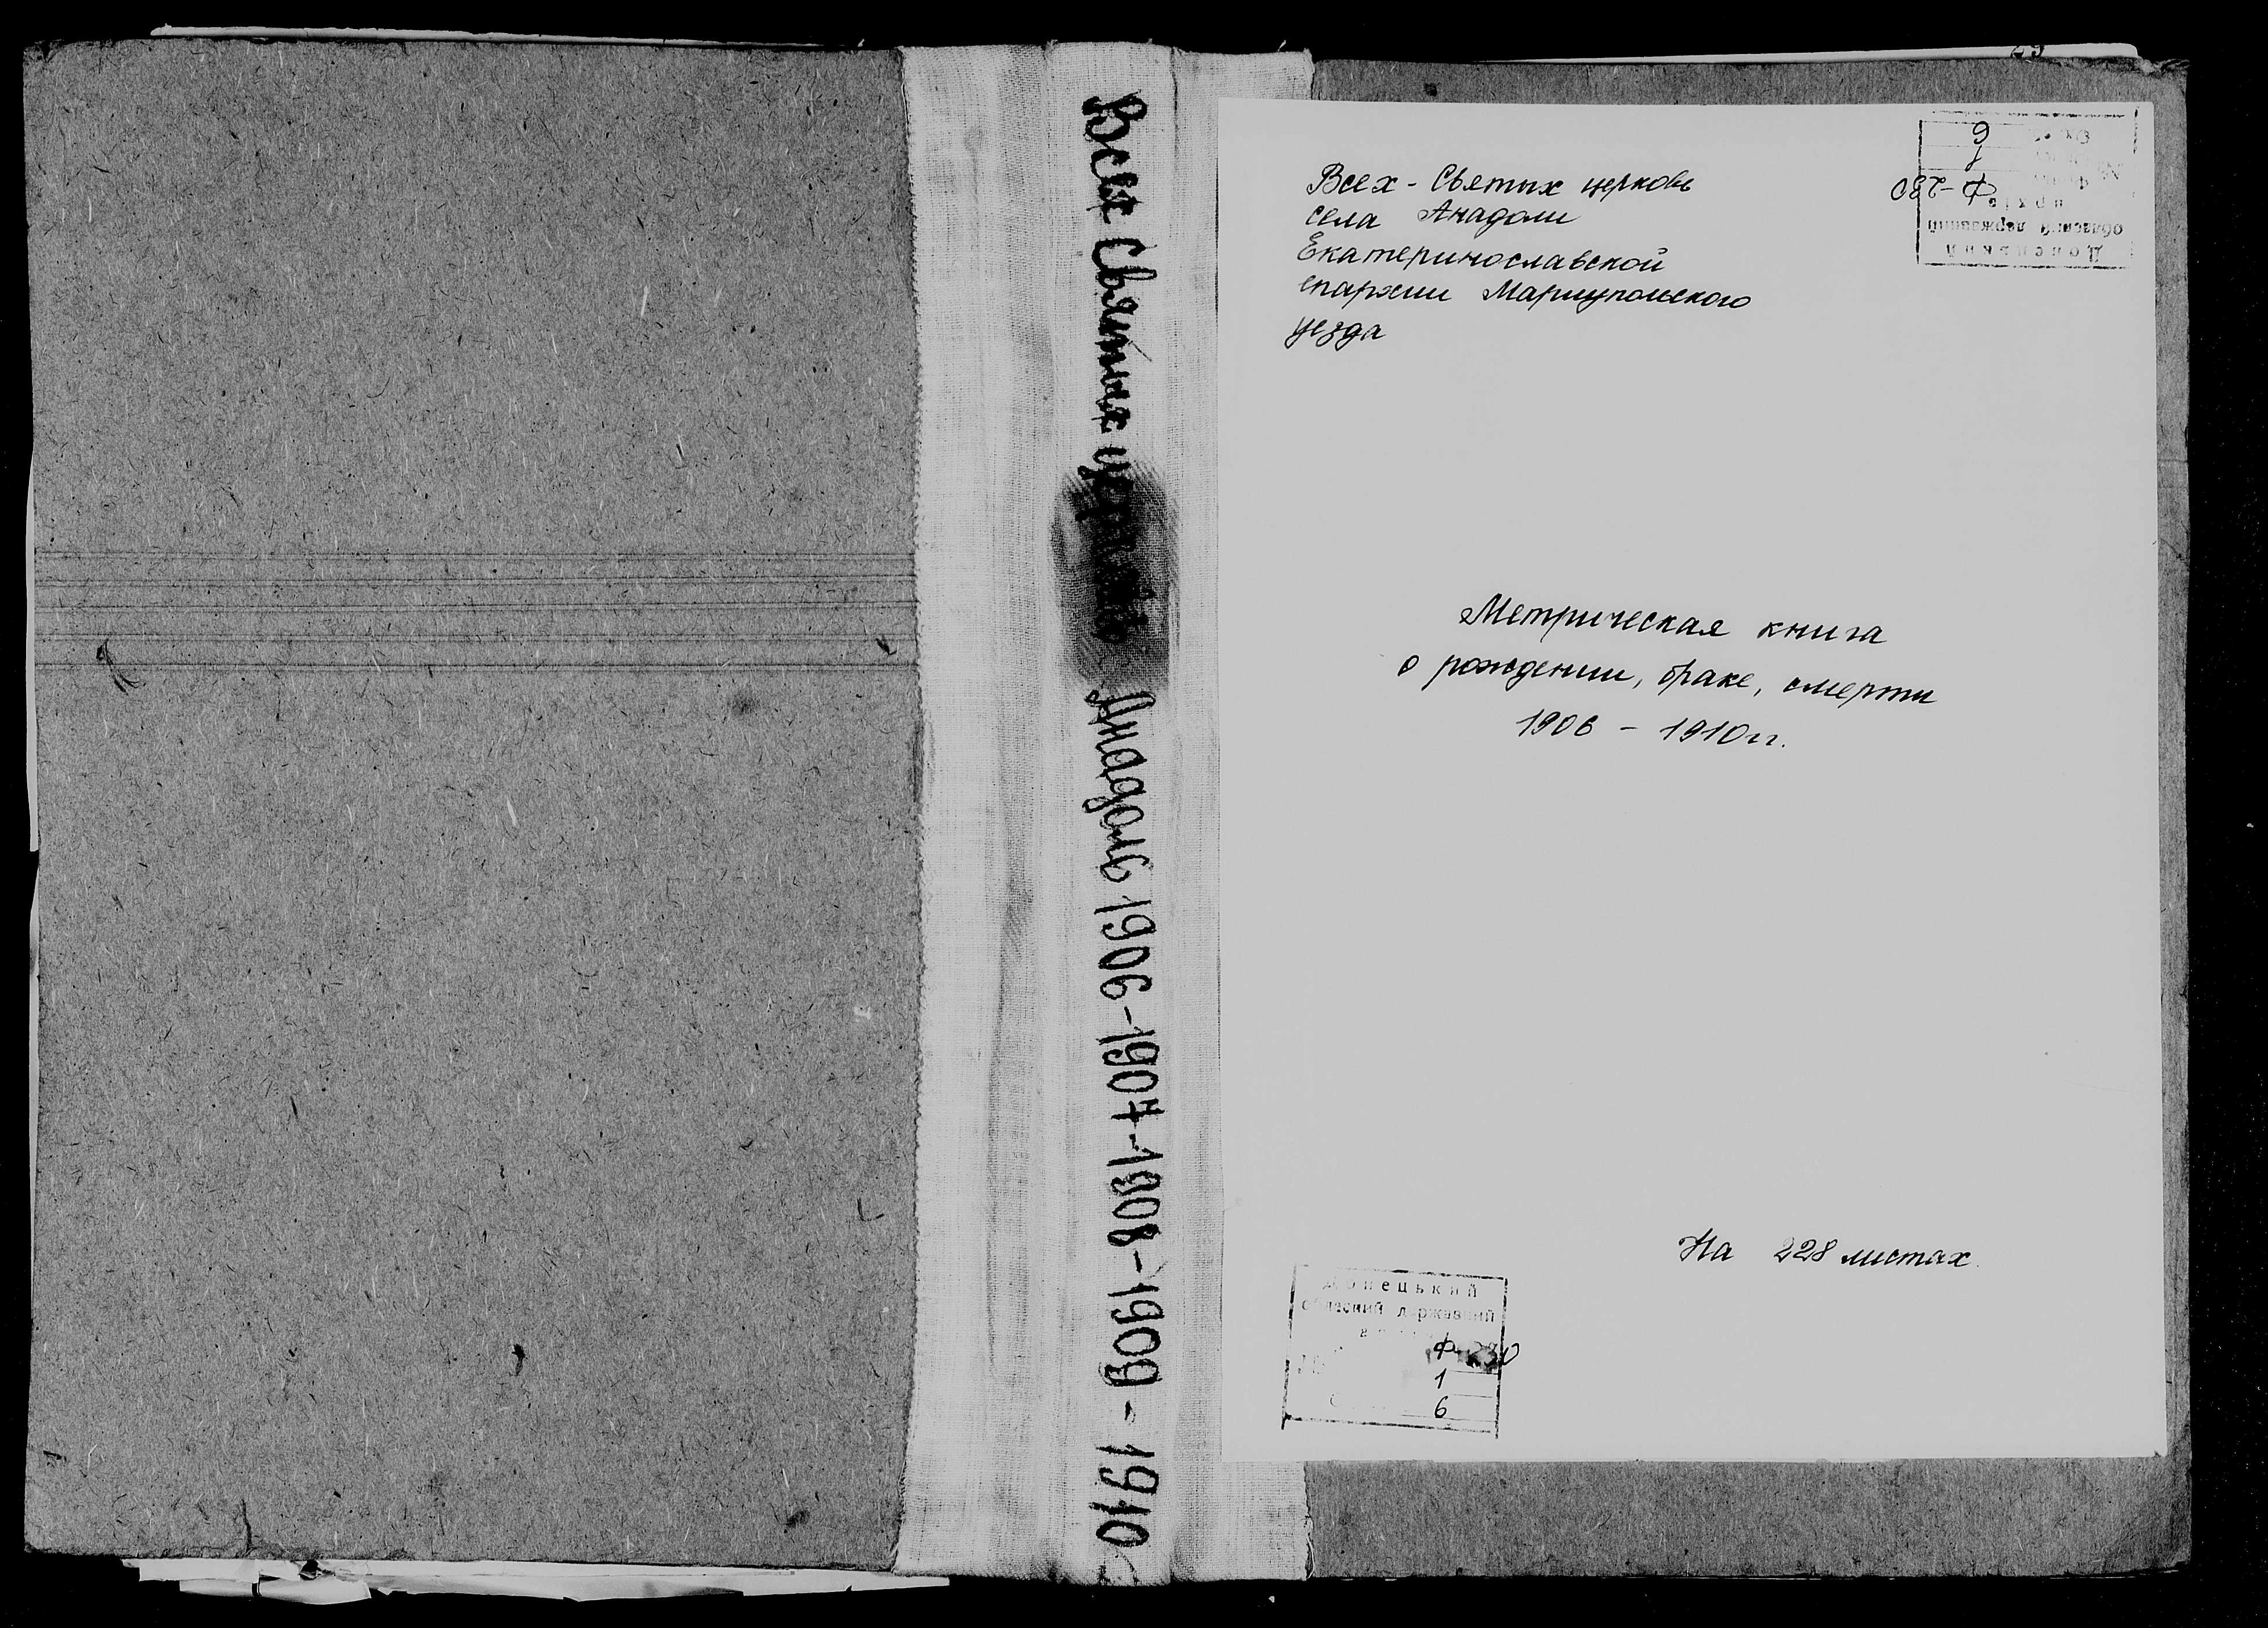 Всех Святых Анадоль 1906-1907-1908-1909-1910
Всех-Святых церковь
села Анадоли
Екатеринославской
епархии Мариупольского
уезда
Донецький
обласний державний
архів
Ф-230
1
6
Метрическая книга
о рождении, браке, смерти
1906 - 1910 гг.
На 228 листах
Донецький
обласний державний
Ф-230
1
6